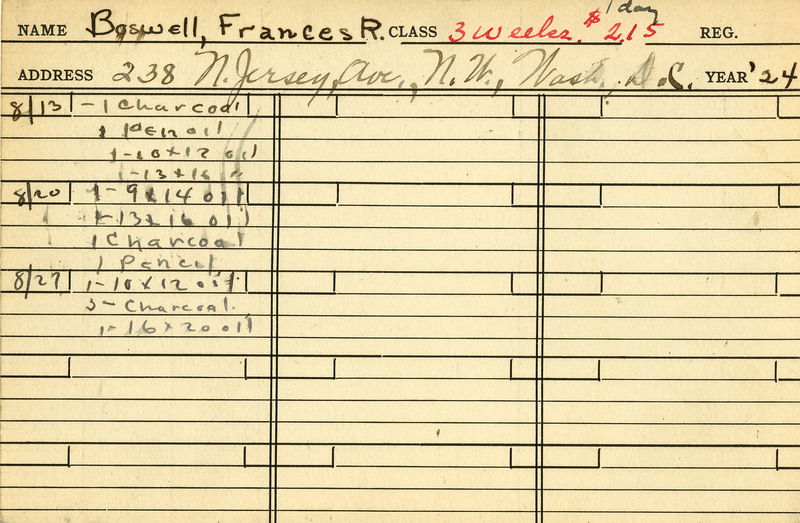 1 day
NAME Boswell, Frances R. CLASS 3 weeks. $2.15 REG.
ADDRESS 238 N. Jersey, Ave., N.W., Wash., D.C. YEAR '24
8/13 - 1 Charcoal
1 Pen oil
1-10x12 oil
1-13x16 "
8/20 1-9x14 oil
1-13x16 oil
1 Charcoal
1 Pencil
8/27 1-10x12 oil
3- Charcoal.
1-16x20 oil